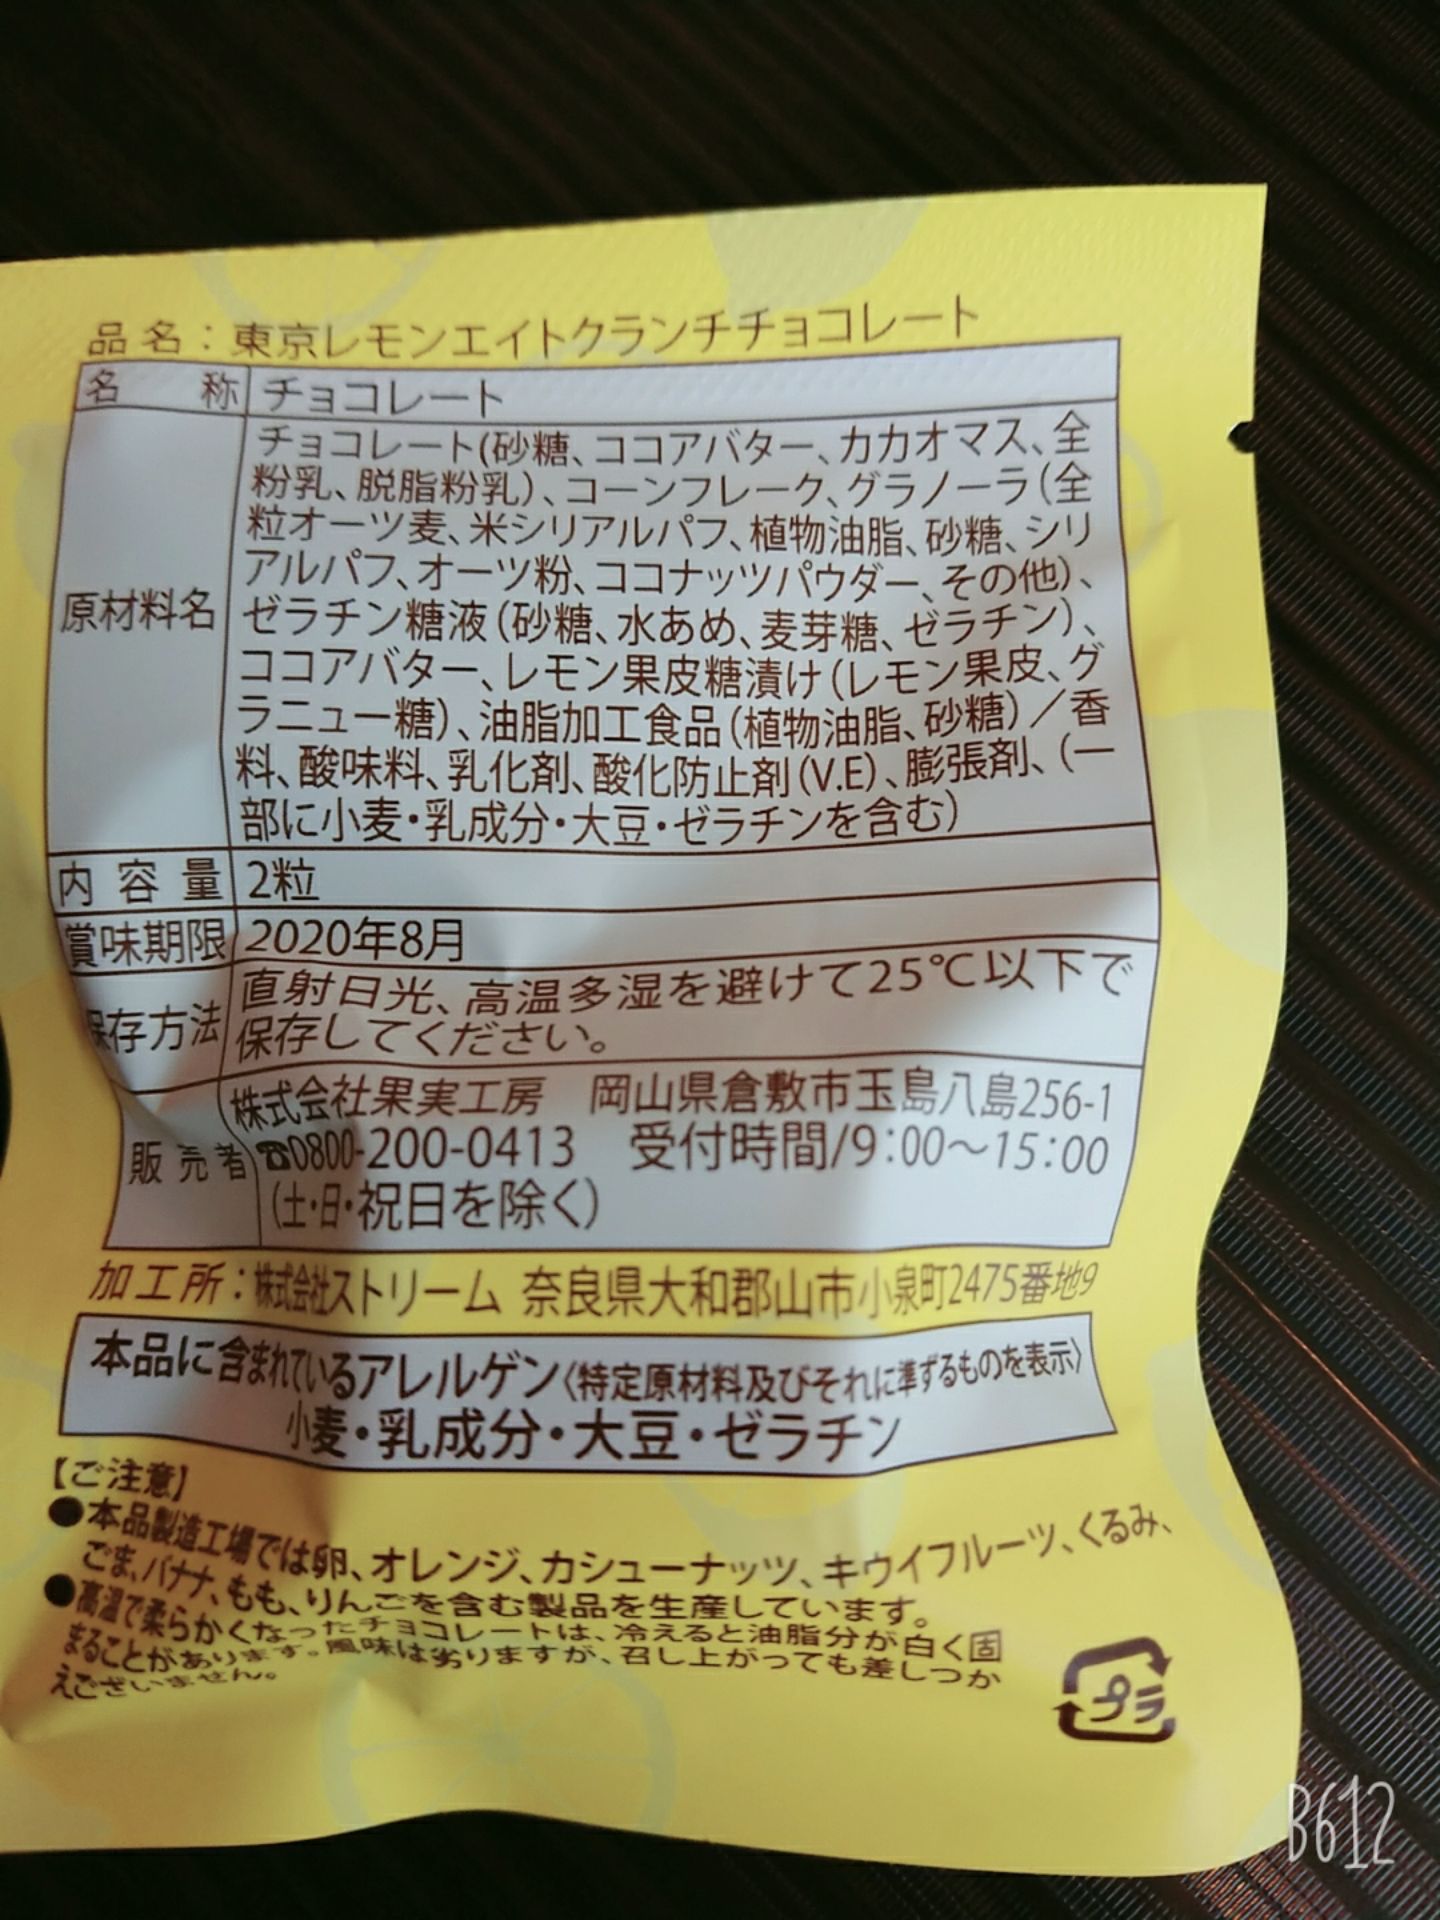 品名：東京レモンエイトクランチチョコレート
名称 チョコレート
原材料名 チョコレート(砂糖、ココアバター、カカオマス、全
粉乳、脱脂粉乳)、コーンフレーク、グラノーラ(全
粒オーツ麦、米シリアルパフ、植物油脂、砂糖、シリ
アルパフ、オーツ粉、ココナッツパウダー、その他)、
ゼラチン糖液(砂糖、水あめ、麦芽糖、ゼラチン)、
ココアバター、レモン果皮糖漬け(レモン果皮、グ
ラニュー糖)、油脂加工食品(植物油脂、砂糖)／香
料、酸味料、乳化剤、酸化防止剤(V.E)、膨張剤、(一
部に小麦・乳成分・大豆・ゼラチンを含む)
内容量 2粒
賞味期限 2020年8月
保存方法 直射日光、高温多湿を避けて25℃以下で
保存してください。
販売者 株式会社果実工房 岡山県倉敷市玉島八島256-1
☎0800-200-0413 受付時間/9:00～15:00
(土・日・祝日を除く)
加工所：株式会社ストリーム 奈良県大和郡山市小泉町2475番地9
本品に含まれているアレルゲン〈特定原材料及びそれに準ずるものを表示〉
小麦・乳成分・大豆・ゼラチン
【ご注意】
●本品製造工場では卵、オレンジ、カシューナッツ、キウイフルーツ、くるみ、
ごま、バナナ、もも、りんごを含む製品を生産しています。
●高温で柔らかくなったチョコレートは、冷えると油脂分が白く固
まることがあります。風味は劣りますが、召し上がっても差しつか
えございません。
プラ
B612